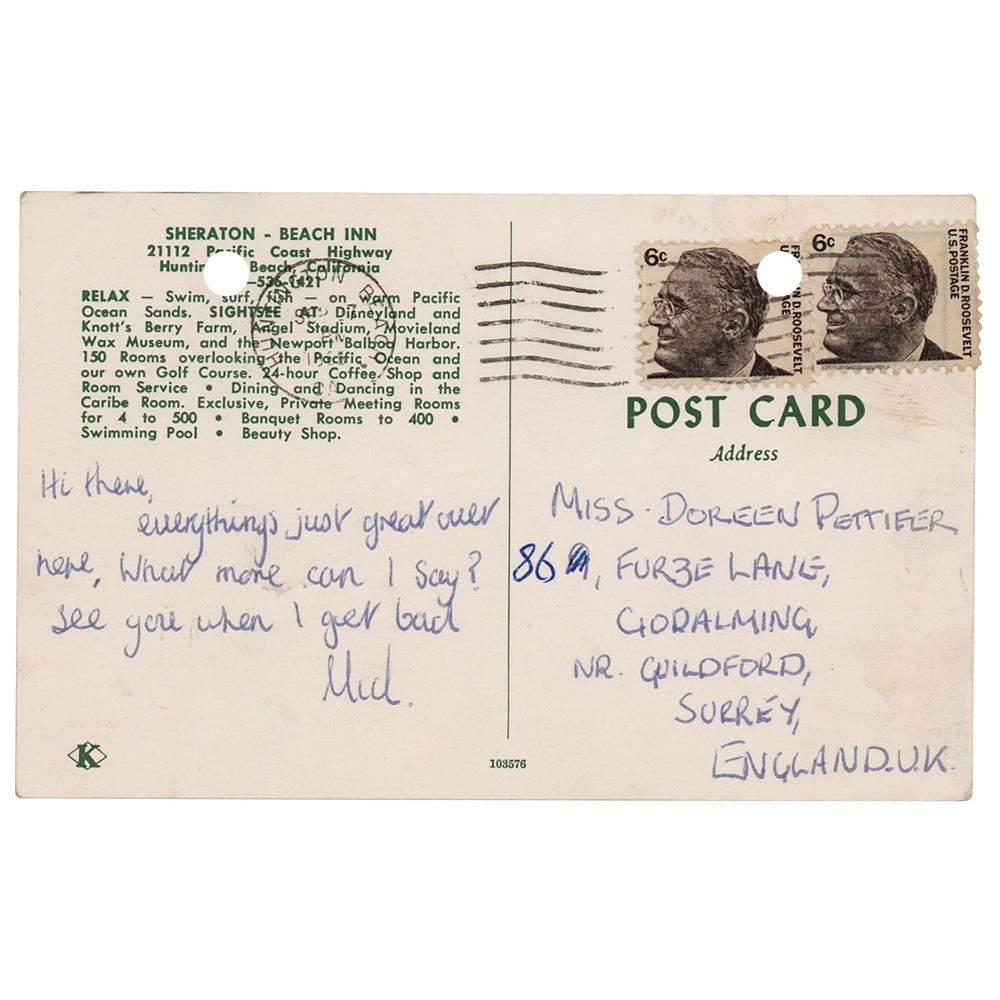 SHERATON - BEACH INN
21112 Pacific Coast Highway
Huntin Beach, California
—536-1421
RELAX — Swim, surf, fish — on warm Pacific
Ocean Sands. SIGHTSEE AT: Disneyland and
Knott's Berry Farm, Angel Stadium, Movieland
Wax Museum, and the Newport Balboa Harbor.
150 Rooms overlooking the Pacific Ocean and
our own Golf Course. 24-hour Coffee Shop and
Room Service • Dining and Dancing in the
Caribe Room. Exclusive, Private Meeting Rooms
for 4 to 500 • Banquet Rooms to 400 •
Swimming Pool • Beauty Shop.
HUNTINGTON BEACH
Hi there,
everythings just great over
here, What more can I say?
see you when I get back
Mick.
K
103576
6c
FRANKLIN D. ROOSEVELT
U.S. POSTAGE
6c
FRANKLIN D. ROOSEVELT
U.S. POSTAGE
POST CARD
Address
MISS. DOREEN PETTIFER
86, FURZE LANE,
GODALMING,
NR. GUILDFORD,
SURREY,
ENGLAND.U.K.